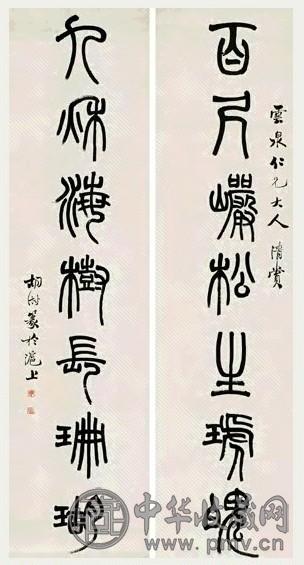 百尺巖松生琥魄
雲泉仁兄大人清賞
九秋海樹長珊瑚
胡澍篆於滬上
中华收藏网
www.pmv.cn